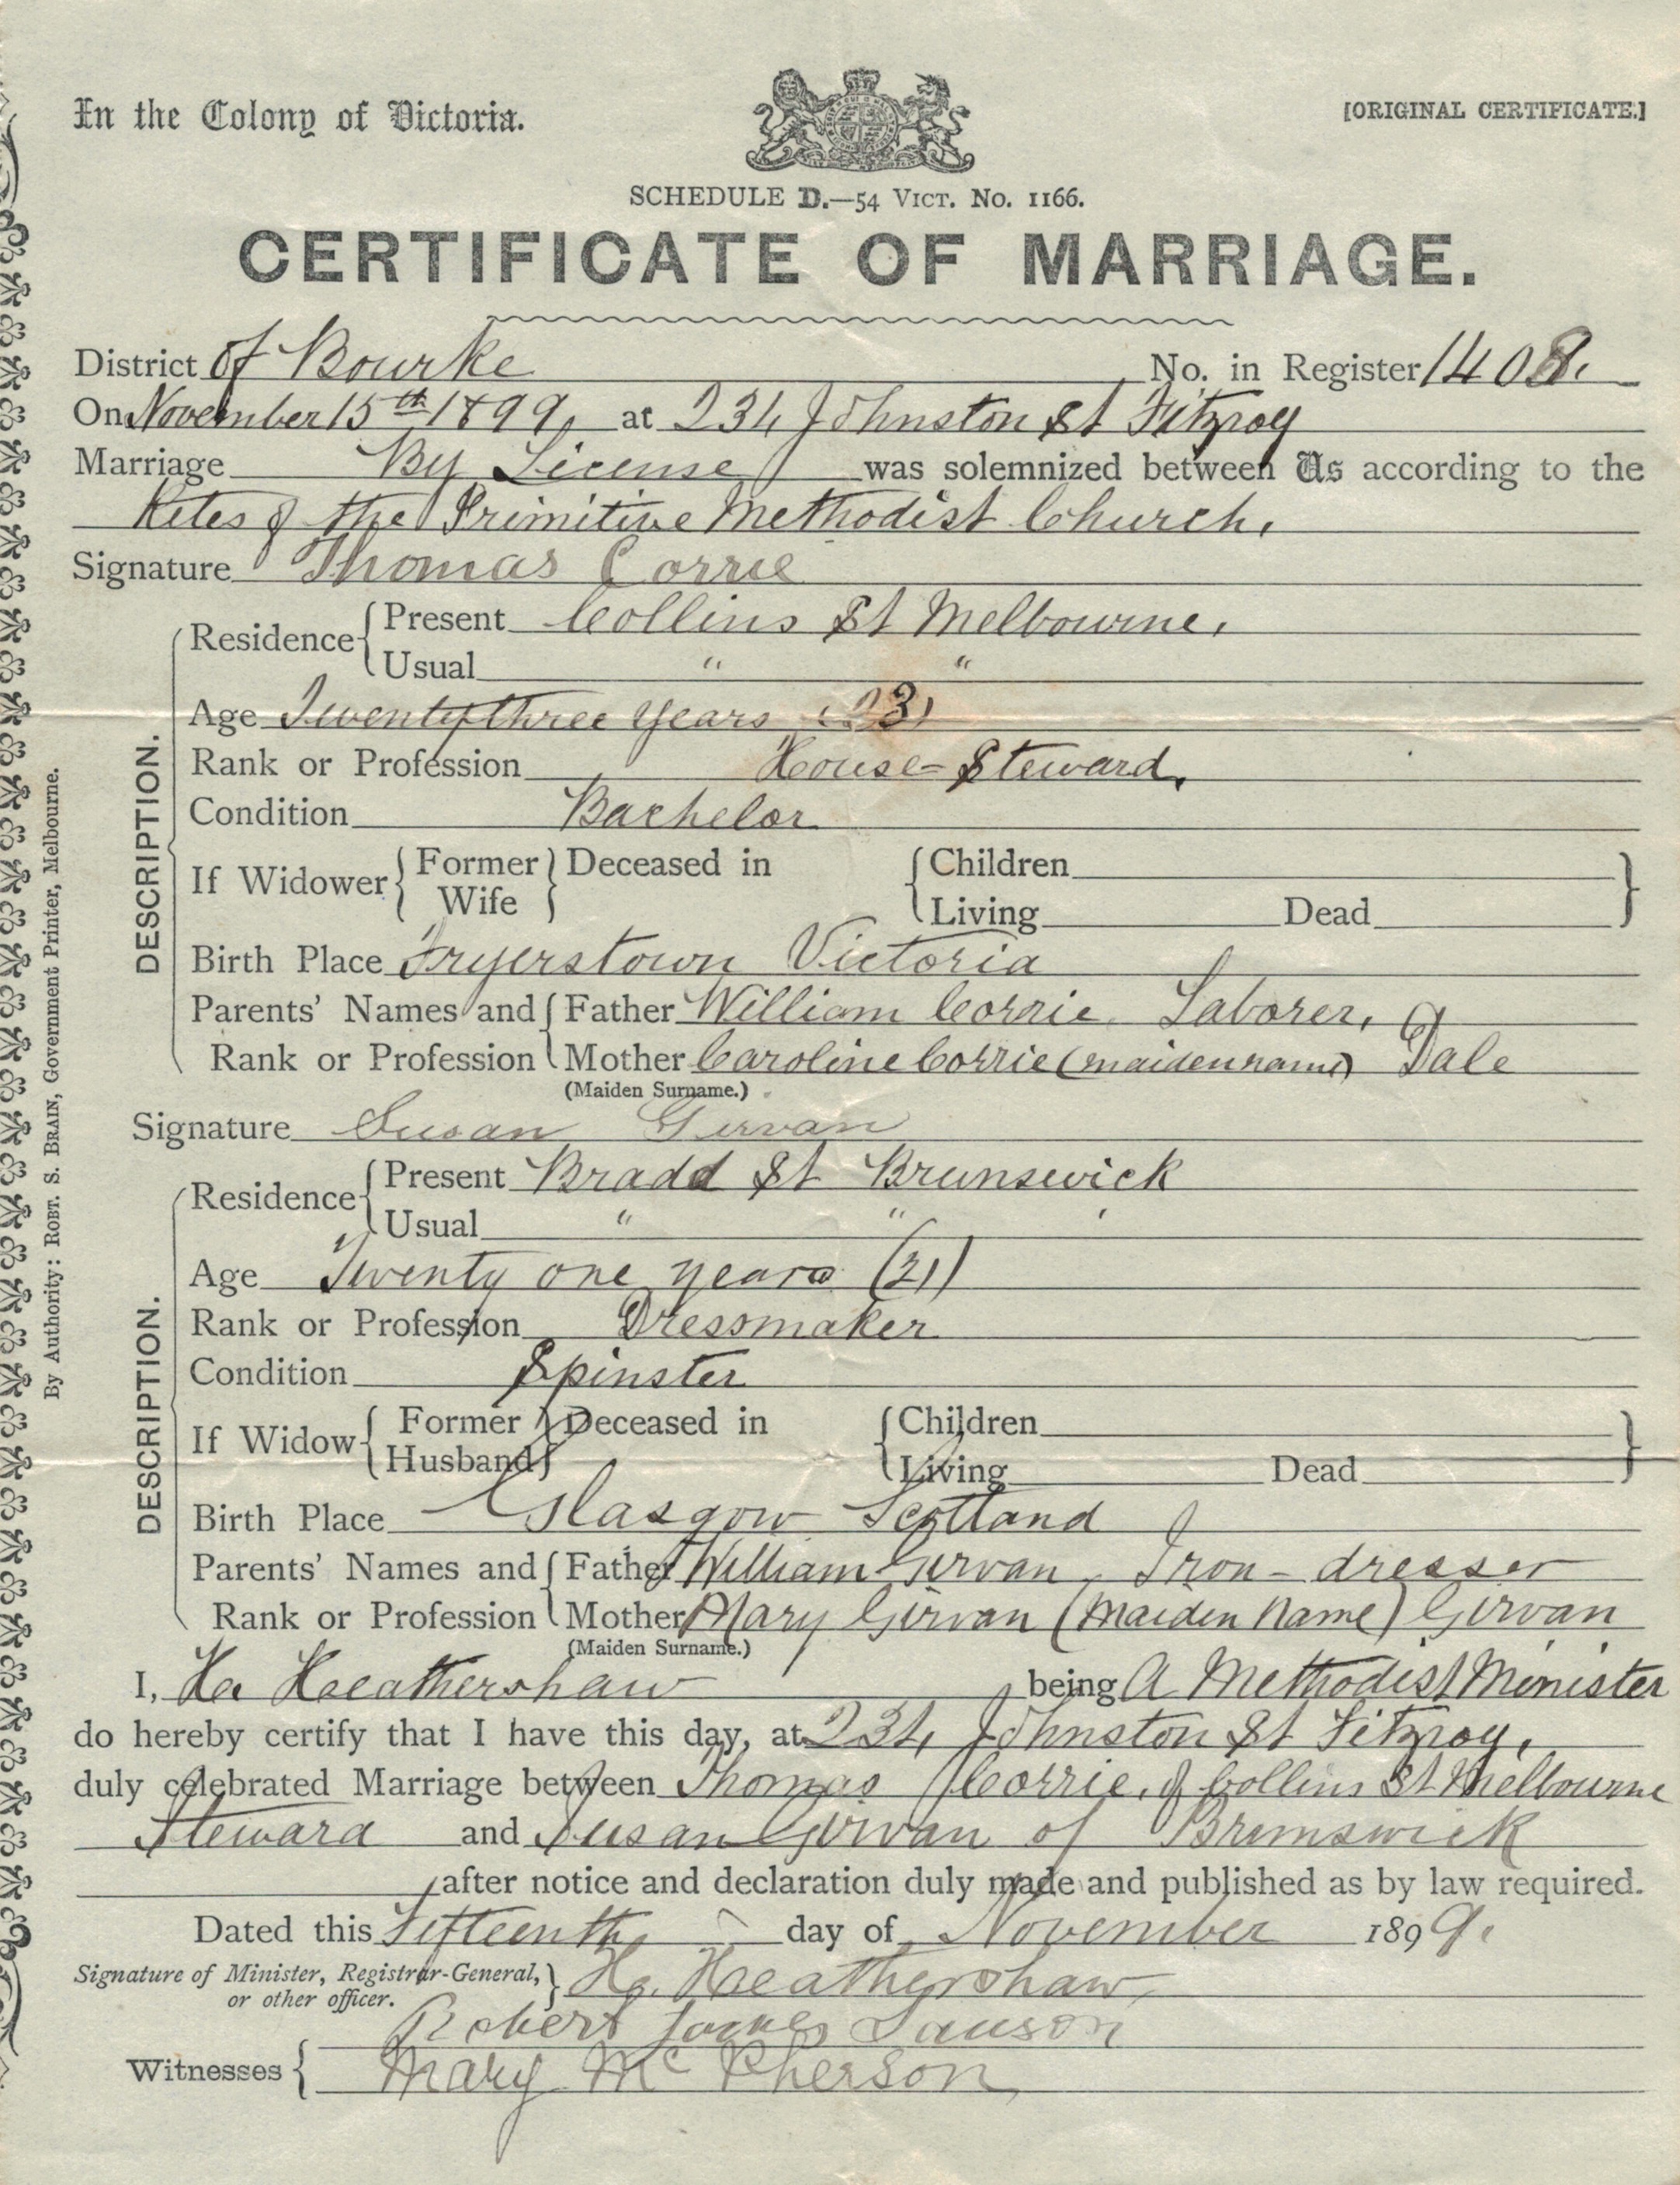 In the Colony of Victoria.
[ORIGINAL CERTIFICATE.]
SCHEDULE D.—54 VICT. No. 1166.
CERTIFICATE OF MARRIAGE.
District of Bourke No. in Register 1408.
On November 15th 1899, at 234 Johnston St Fitzroy
Marriage By License was solemnized between Us according to the
Rites of the Primitive Methodist Church.
Signature Thomas Corrie
DESCRIPTION.
Residence { Present Collins St Melbourne.
Usual " "
Age Twenty three years (23)
Rank or Profession House-Steward.
Condition Bachelor
If Widower { Former Wife } Deceased in { Children
Living Dead }
Birth Place Fryerstown Victoria
Parents' Names and { Father William Corrie. Laborer.
Rank or Profession { Mother Caroline Corrie (maiden name) Dale
(Maiden Surname.)
Signature Susan Girvan
DESCRIPTION.
Residence { Present Bradd St Brunswick
Usual " "
Age Twenty one years (21)
Rank or Profession Dressmaker
Condition Spinster
If Widow { Former Husband } Deceased in { Children
Living Dead }
Birth Place Glasgow Scotland
Parents' Names and { Father William Girvan, Iron-dresser
Rank or Profession { Mother Mary Girvan (Maiden Name) Girvan
(Maiden Surname.)
I, Heathershaw being A Methodist Minister
do hereby certify that I have this day, at 234 Johnston St Fitzroy,
duly celebrated Marriage between Thomas Corrie, of Collins St Melbourne
Steward and Susan Girvan of Brunswick
after notice and declaration duly made and published as by law required.
Dated this Fifteenth day of November 1899.
Signature of Minister, Registrar-General, } Heathershaw
or other officer.
Robert Lawson
Witnesses { Mary McPherson
By Authority: ROBT. S. BRAIN, Government Printer, Melbourne.